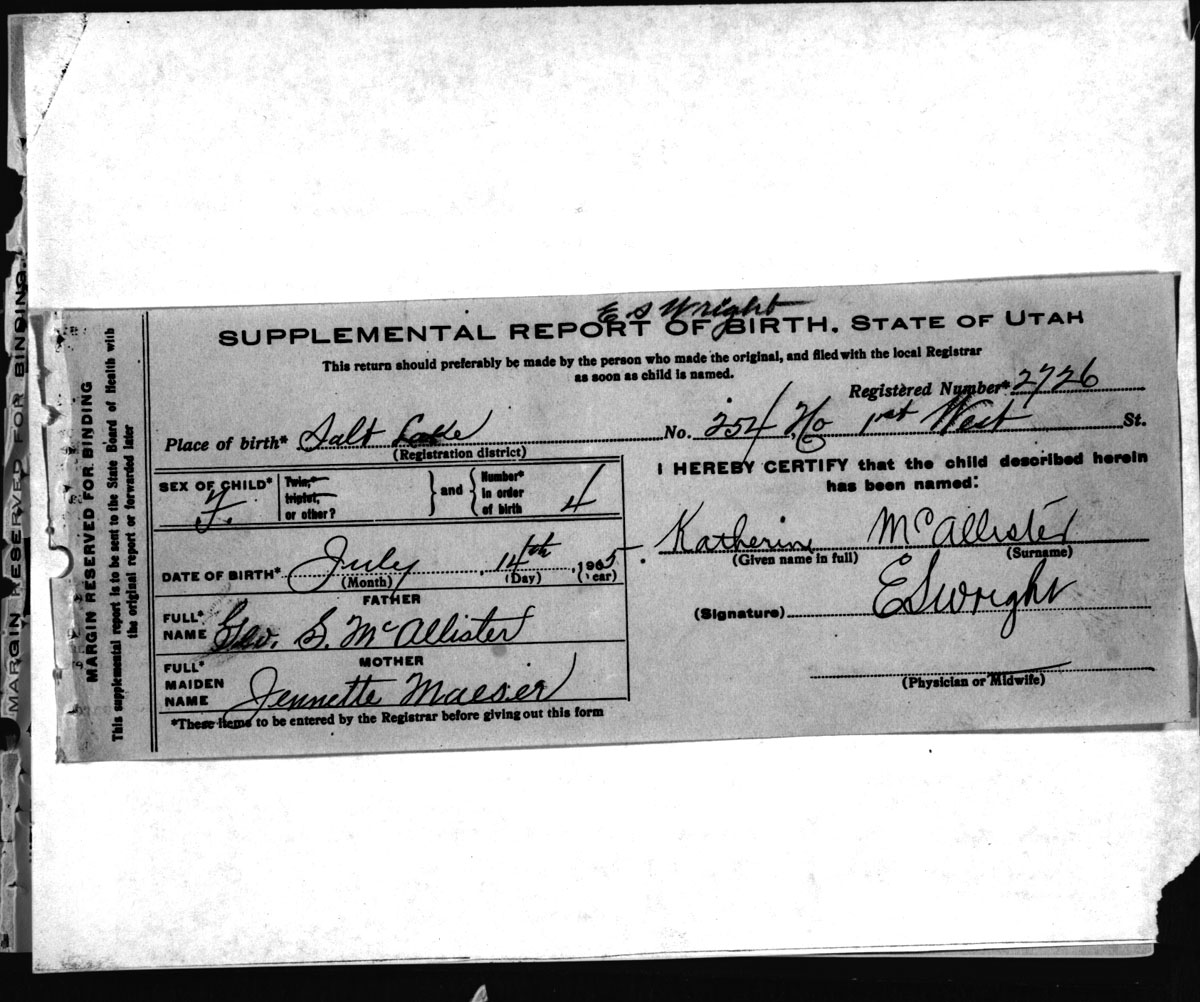 E S Wright
SUPPLEMENTAL REPORT OF BIRTH. STATE OF UTAH
This return should preferably be made by the person who made the original, and filed with the local Registrar
as soon as child is named.
Registered Number* 2726
Place of birth* Salt Lake No. 254 No 1st West St.
(Registration district)
SEX OF CHILD* F.
Twin,*
triplet,
or other?
and
Number*
in order
of birth
4
I HEREBY CERTIFY that the child described herein
has been named:
Katherine McAllister
(Given name in full) (Surname)
DATE OF BIRTH* July, 14th, 1905
(Month) (Day) (Year)
(Signature) E S Wright
FATHER
FULL*
NAME Geo. S. McAllister
MOTHER
FULL*
MAIDEN
NAME Jennette Maeser
(Physician or Midwife)
*These items to be entered by the Registrar before giving out this form
MARGIN RESERVED FOR BINDING
This supplemental report is to be sent to the State Board of Health with
the original report or forwarded later
MARGIN RESERVED FOR BINDING.